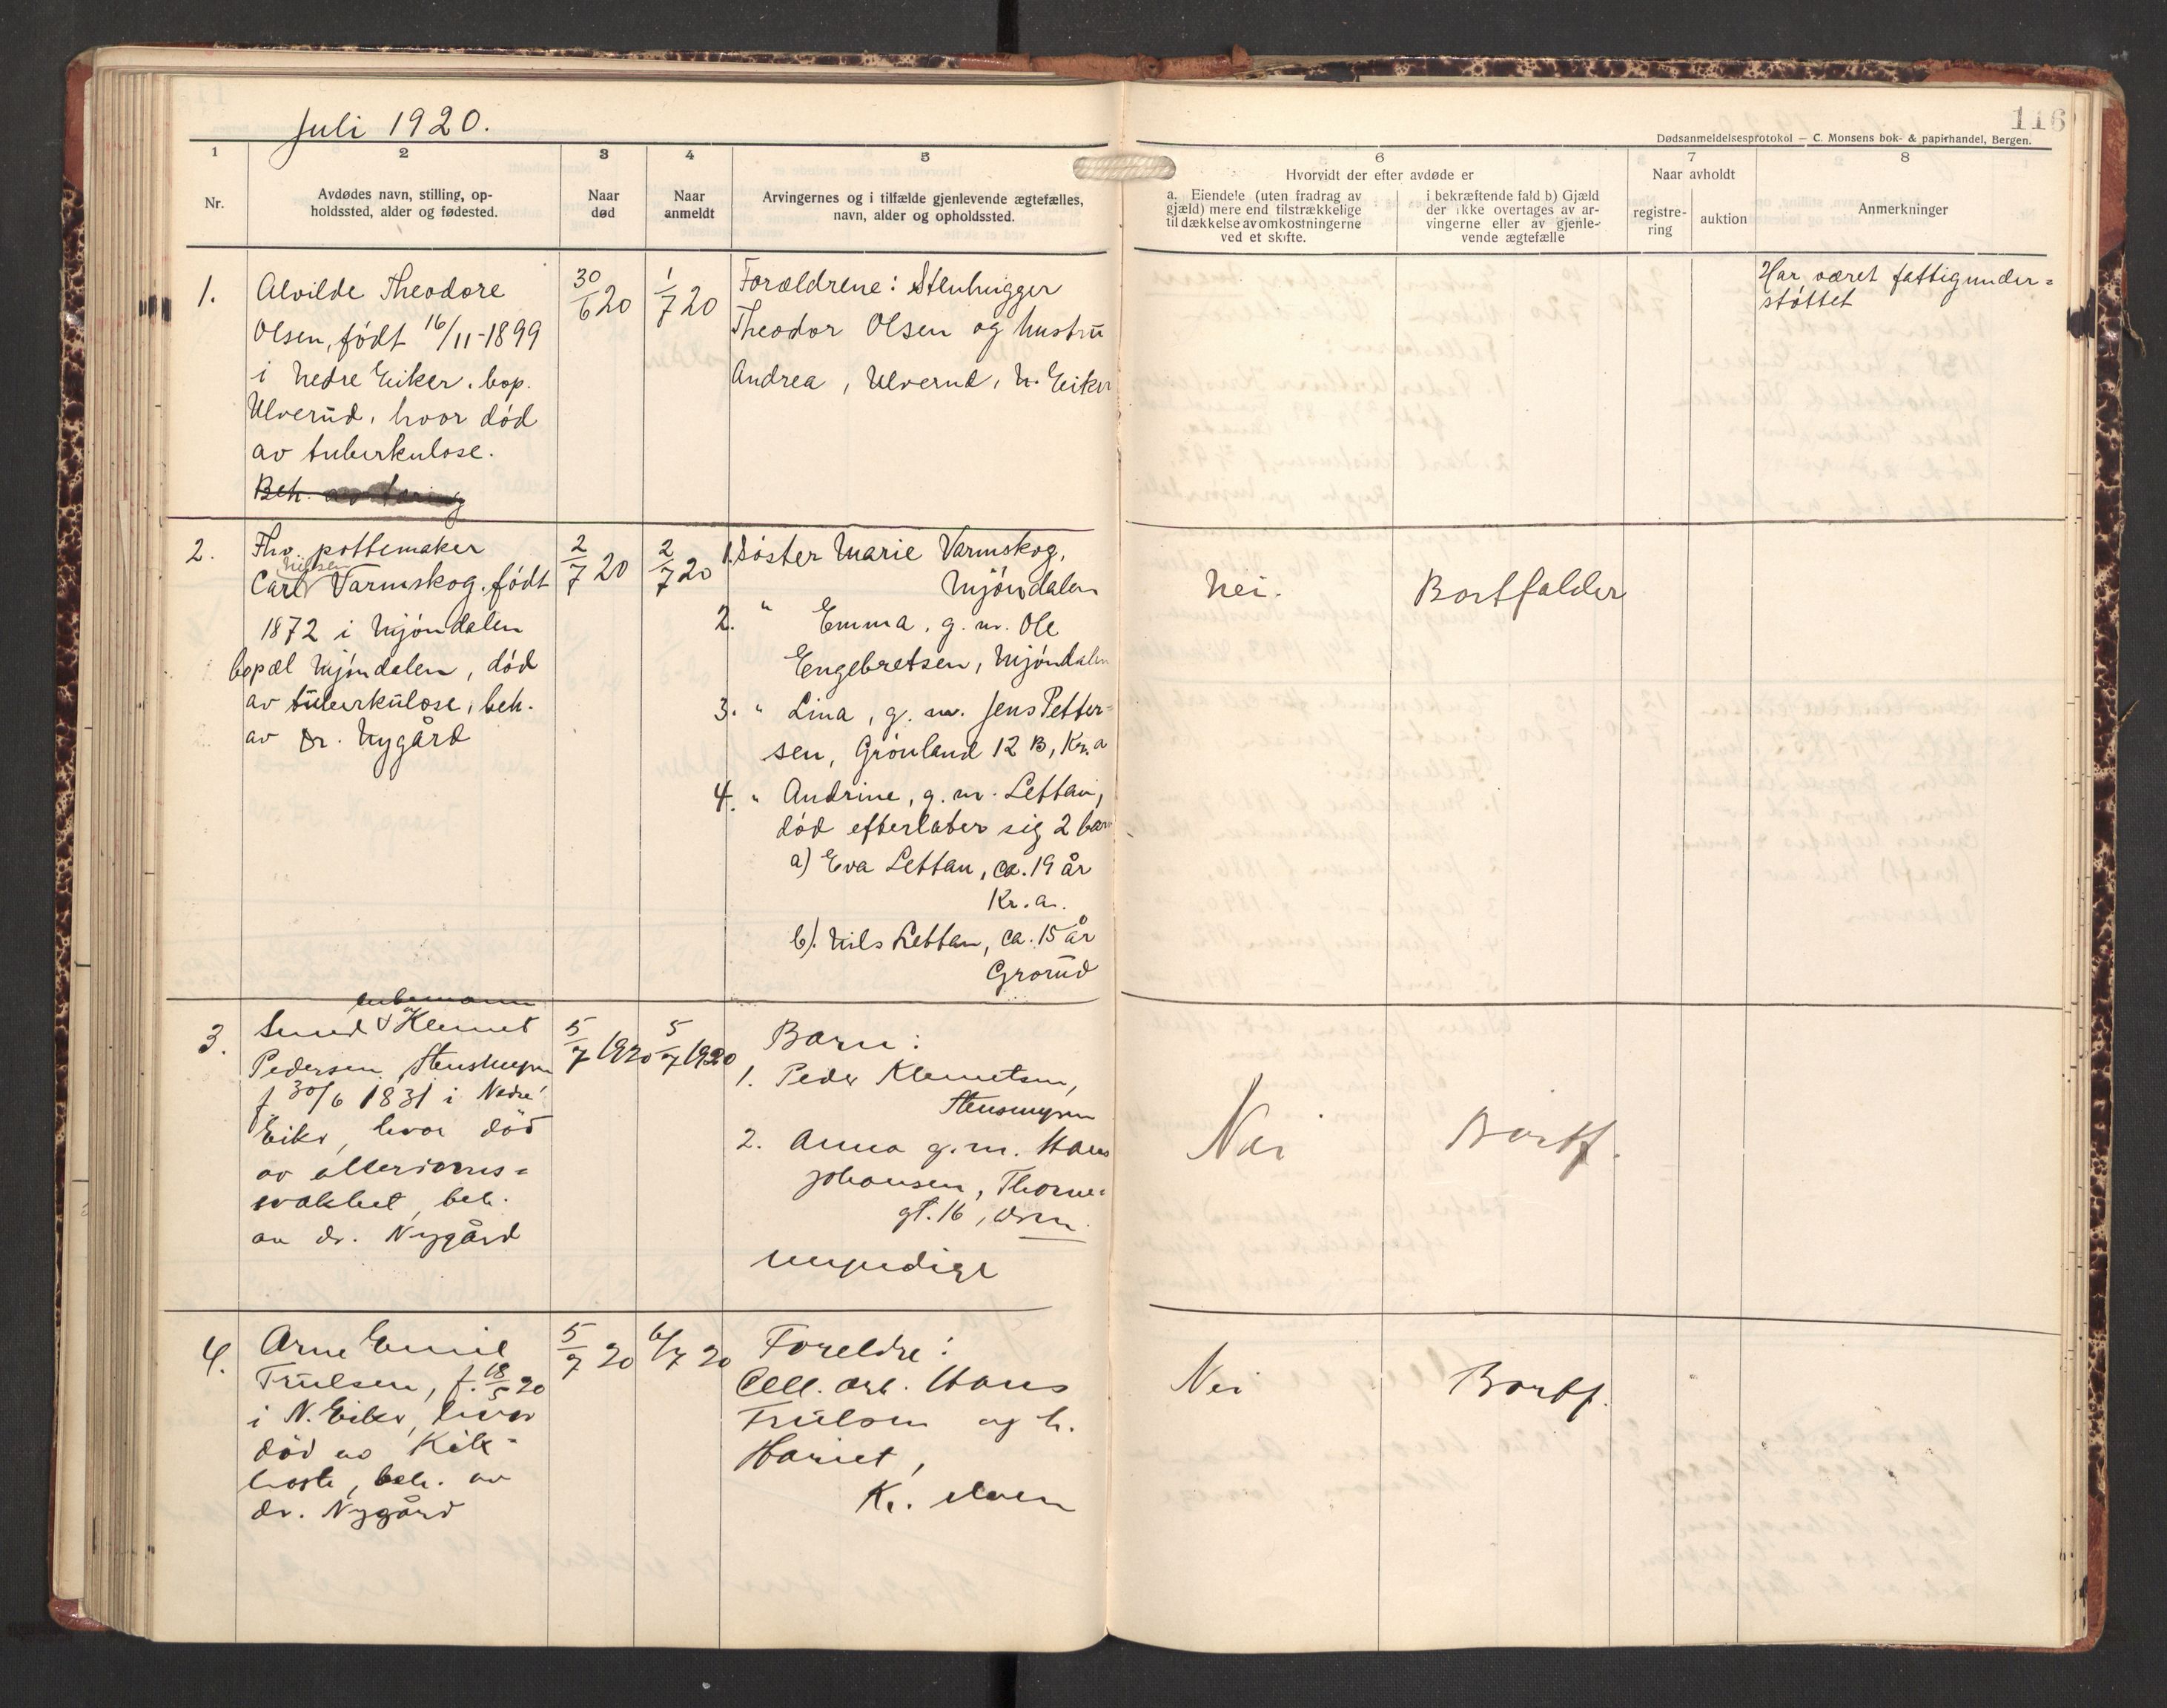 Juli 1920.
116
Dødsanmeldelsesprotokol — C. Monsens bok- & papirhandel, Bergen.
1
Nr.
2
Avdødes navn, stilling, op-
holdssted, alder og fødested.
3
Naar
død
4
Naar
anmeldt
5
Arvingernes og i tilfælde gjenlevende ægtefælles,
navn, alder og opholdssted.
6
Hvorvidt der efter avdøde er
a. Eiendele (uten fradrag av
gjæld) mere end tilstrækkelige
til dækkelse av omkostningerne
ved et skifte.
i bekræftende fald b) Gjæld
der ikke overtages av ar-
vingerne eller av gjenle-
vende ægtefælle
7
Naar avholdt
registre-
ring
auktion
8
Anmerkninger
1.
Alvilde Theodore
Olsen, født 16/11-1899
i Nedre Eiker. bop.
Ulverud, hvor død
av tuberkulose.
Beh. av
30/6 20
1/7 20
Forældrene: Stenhugger
Theodor Olsen og hustru
Andrea, Ulverud, N. Eiker
Har været fattigunder=
støttet
2.
Fhv. pottemaker
Nilsen
Carl Varmskog. født
1872 i Mjøndalen
bopæl Mjøndalen, død
av tuberkulose, beh.
av Dr. Nygård
2/7 20
2/7 20
1. Søster Marie Varmskog,
Mjøndalen
2. " Emma, g. m. Ole
Engebretsen, Mjøndalen
3. " Lina, g. m. Jens Petter=
sen, Grønland 12 B, Kr.a
4. " Andrine, g. m. Lettau,
død efterlater sig 2 barn
a) Eva Lettau, ca. 19 år
Kr. a.
b). Nils Lettau, ca. 15 år
Grorud
Nei.
Bortfalder
3.
enkemann
Klemet
Pedersen,
f 30/6 1831 i Nedre
Eiker, hvor död
av alterdoms=
svakhet, beh.
av dr. Nygård
5/7 1920
5/7 1920
Barn:
1. Peder Klemetsen,
Stensmyren
2. Anna g. m. Hans
Johansen, Thorne=
gt. 16, Drm.
myndige
Nei
Bortf.
4.
Arne Emil
Trulsen, f. 18/5 20
i N. Eiker, hvor
död av Kik=
hoste, beh. av
dr. Nygård
5/7 20
6/7 20
Foreldre:
Cell. arb. Hans
Trulsen og h.
Hariet,
Nei
Bortf.